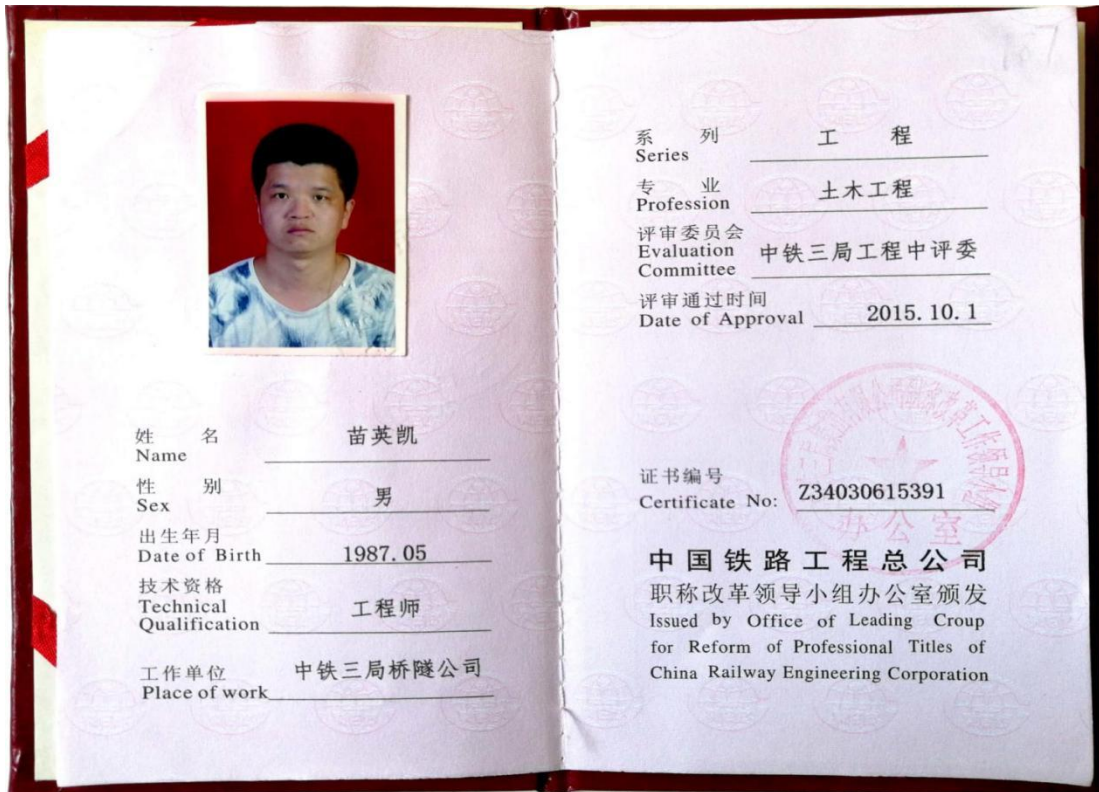 姓名 苗英凯
Name
性别 男
Sex
出生年月
Date of Birth 1987.05
技术资格
Technical
Qualification 工程师
工作单位 中铁三局桥隧公司
Place of work
系列 工程
Series
专业 土木工程
Profession
评审委员会
Evaluation
Committee 中铁三局工程中评委
评审通过时间
Date of Approval 2015.10.1
证书编号
Certificate No: Z34030615391
办公室
中国铁路工程总公司
职称改革领导小组办公室颁发
Issued by Office of Leading Croup
for Reform of Professional Titles of
China Railway Engineering Corporation